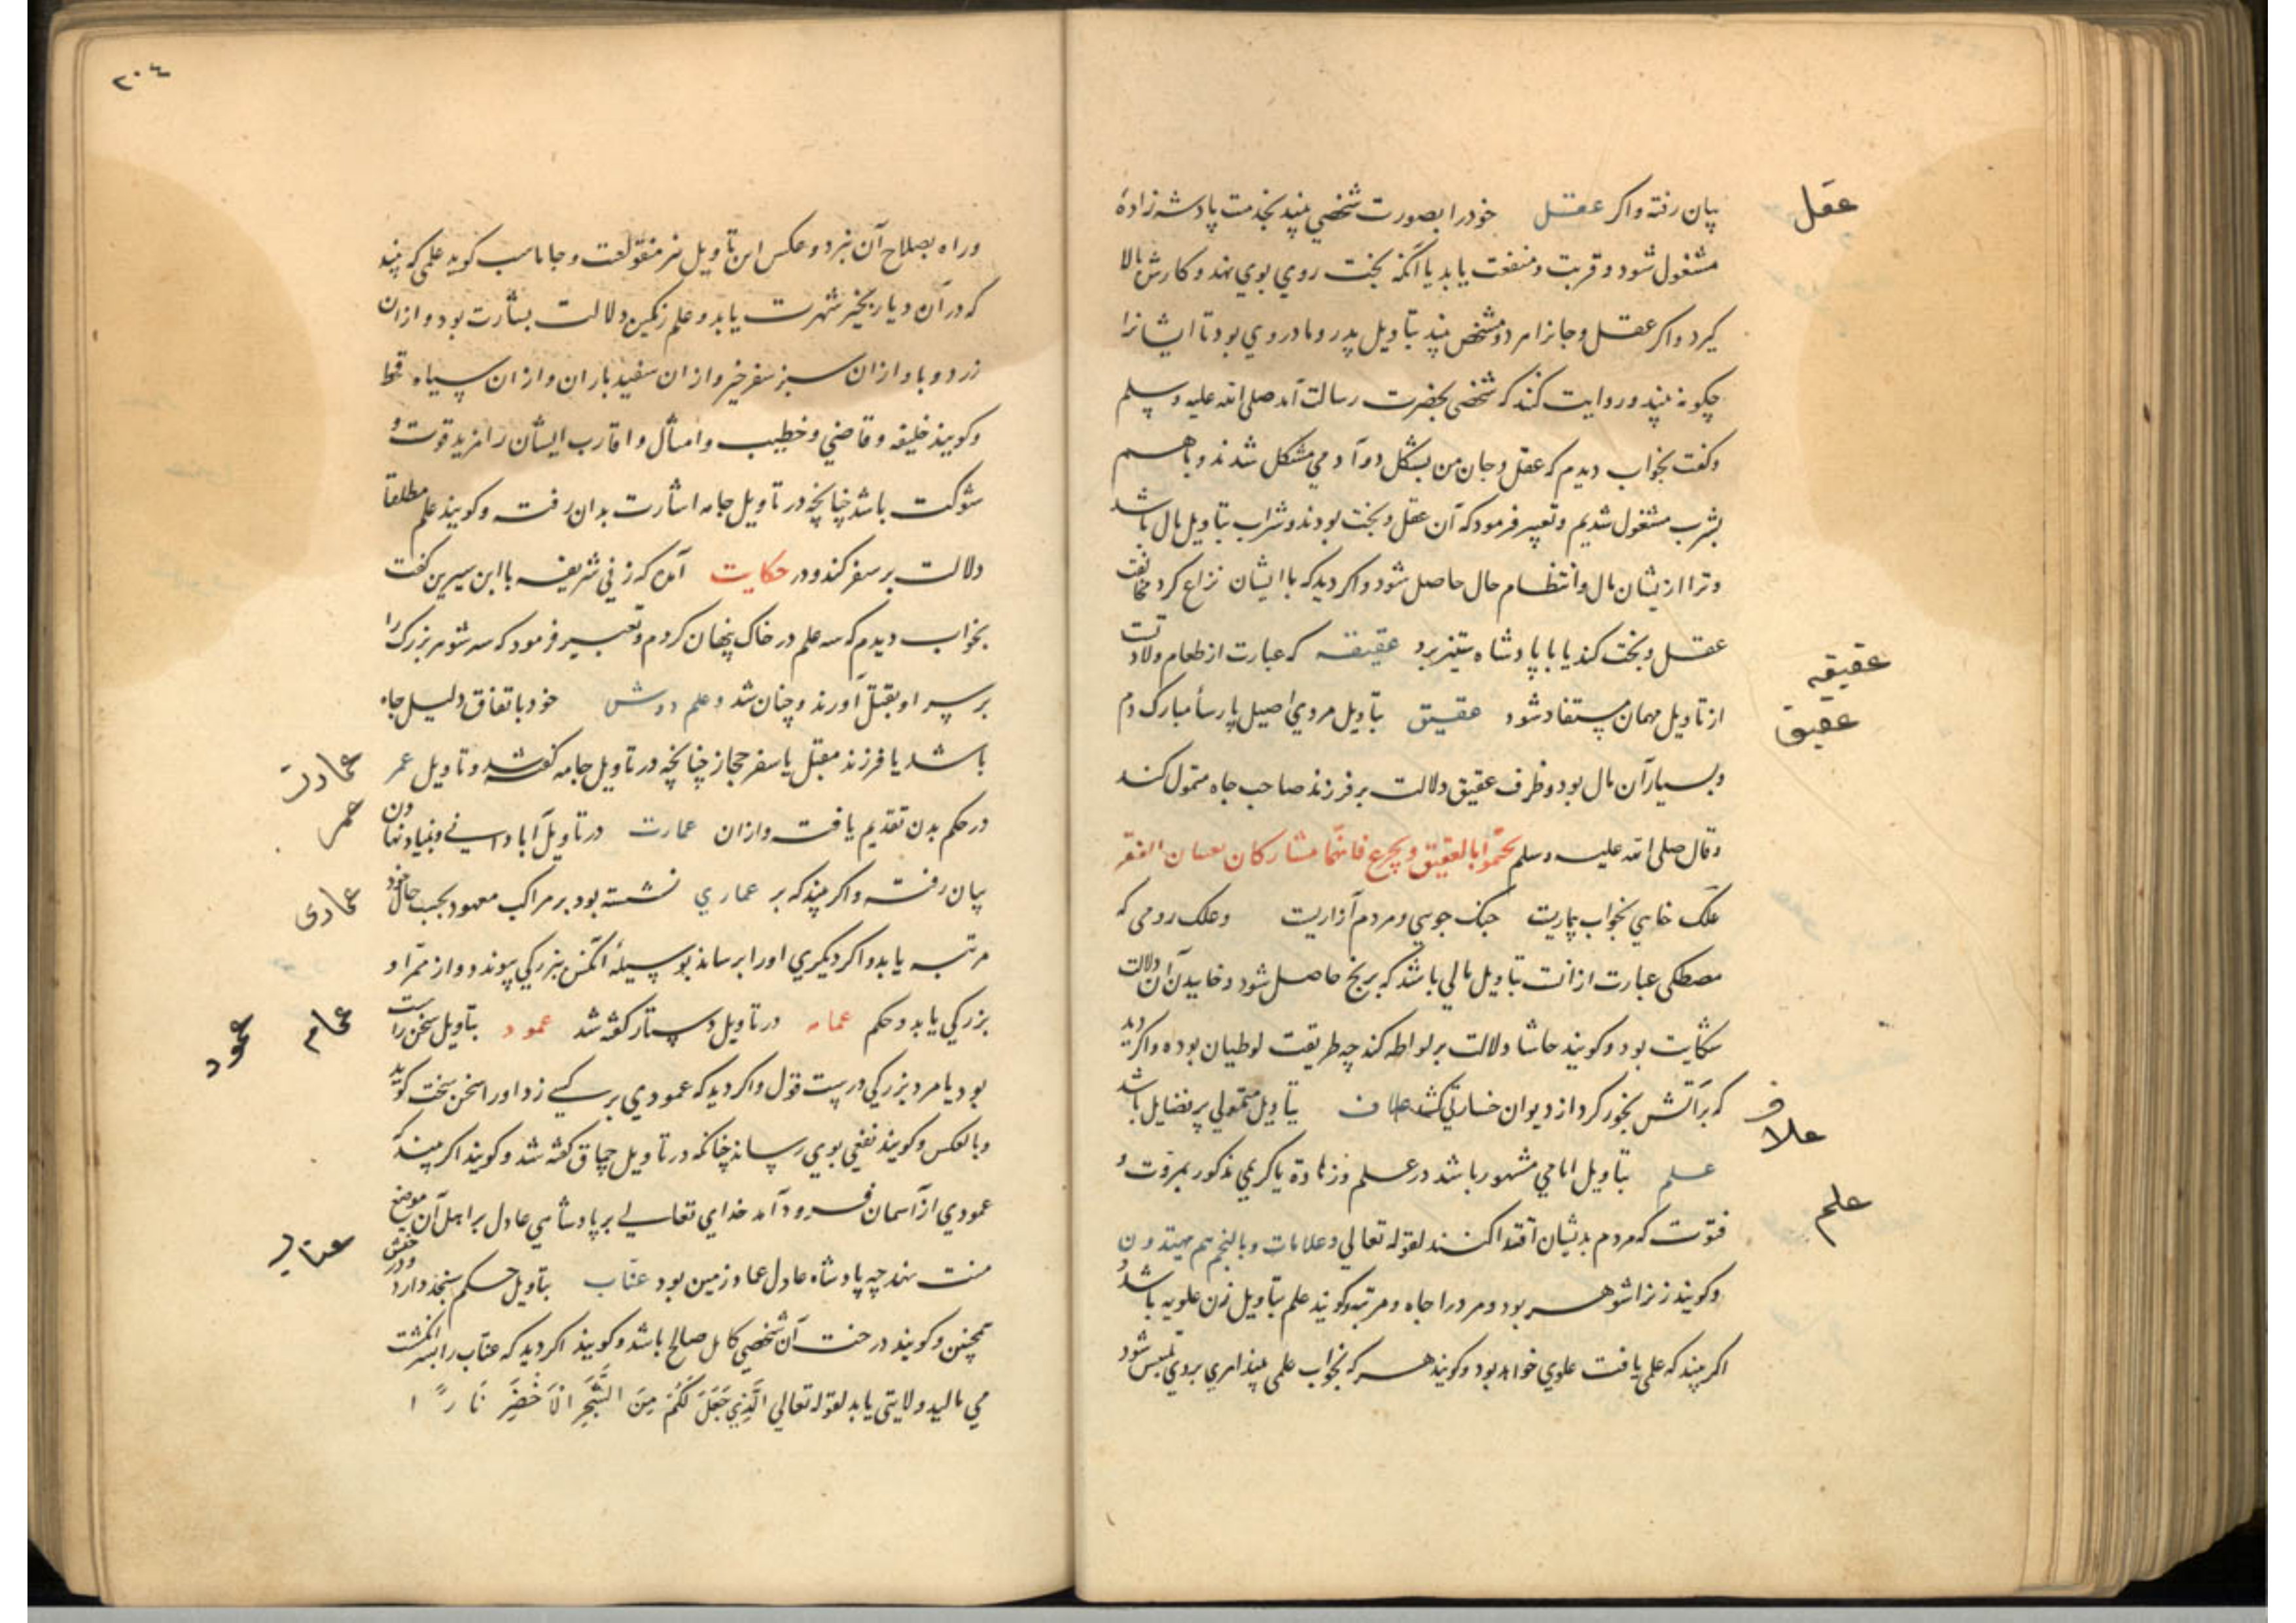 عقل
بیان رفته واکر عقل خودرا بصورت شخصی بیند بخدمت پادشه زادهٔ
مشغول شود وقربت ومنفعت یابد یا آنکه بخت روی بوی نهد وکارش بالا
کیرد واکر عقل وجانرا مرد ومشخص بیند بتاویل پدر ومادر وی بود تا ایشانرا
چکونه بیند وروایت کنند که شخصی بحضرت رسالت آمد صلی الله علیه وسلم
وکفت بخواب دیدم که عقل وجان من بشکل دو آدمی مشکل شدند وباهم
بشرب مشغول شدیم وتعبیر فرمود که آن عقل وبخت بودند وشراب بتاویل مال باشد
وترا ازیشان مال وانتظام حال حاصل شود واکر دید که با ایشان نزاع کرد مخالفت
عقل وبخت کند یا با پادشاه ستیز برد عقیقه که عبارت از طعام ولادتست
عقیقه
از تاویل مهمان مستفاد شود عقیق بتاویل مردی اصیل پارسا مبارک دم
عقیق
وبسیار آن مال بود وظرف عقیق دلالت بر فرزند صاحب جاه متمول کند
وقال صلی الله علیه وسلم تختموا بالعقیق
علک خایی بخواب بیاریت جنک جویی ومردم آزاریت وعلک رومی که
مصطکی عبارت از آنست بتاویل مالی باشد که برنج حاصل شود وخاییدن آن دلالت
شکایت بود وکویند حاشا دلالت بر لواطه کند چه طریقت لوطیان بوده واکر دید
که بر آتش بخور کرد از دیوان خسارتی کشد علاف بتاویل متمولی پر فضایل باشد
علاف
علم بتاویل امامی مشهور باشد در علم وزهادة یا کریمی مذکور بمروت و
علم
فتوت که مردم بدیشان اقتدا کنند لقوله تعالی وعلامات وبالنجم هم یهتدون
وکویند زنرا شوهر بود ومرد را جاه ومرتبه وکویند علم بتاویل زن علویه باشد و
اکر بیند که علمی یافت علوی خواهد بود وکویند هر که بخواب علمی بیند امری بروی ملتبس شود
٢٠٤
وراه بصلاح آن نبرد وعکس این تاویل نیز منقولست وجاماسب کوید علمی که بیند
که در آن دیار بخیر شهرت یابد وعلم رنکین دلالت بشارت بود واز آن
زرد وبا واز آن سبز سفر خیر واز آن سفید باران واز آن سیاه قحط
وکویند خلیفه وقاضی وخطیب وامثال واقارب ایشان را مزید قوت و
شوکت باشد چنانچه در تاویل جامه اشارت بدان رفت وکویند علم مطلقا
دلالت بر سفر کند ودر حکایت آمده که زنی شریفه با ابن سیرین کفت
بخواب دیدم که سه علم در خاک پنهان کردم وتعبیر فرمود که سه شوهر بزرک را
بر سر او بقتل آورند وچنان شد وعلم دوش خود باتفاق دلیل جاه
باشد یا فرزند مقبل یا سفر حجاز چنانچه در تاویل جامه کفته شد وتاویل عمر
عمارت
عمر
در حکم بدن تقدیم یافت واز آن عمارت در تاویل آبادانی وبنیاد نهادن
بیان رفت واکر بیند که بر عماری نشسته بود بر مراکب معهود بحسب حال خود
عماری
مرتبه یابد واکر دیکری اورا برساند بوسیله آنکس ببزرکی پیوندد واز ثمر او
بزرکی یابد وحکم عمامه در تاویل دستار کفته شد عمود بتاویل سخن راست
عمام
عمود
بود یا مرد بزرکی درست قول واکر دید که عمودی بر کسی زد اورا سخن سخت کوید
وبالعکس وکویند نفعی بوی رساند چنانکه در تاویل چماق کفته شد وکویند اکر بیند که
عمودی از آسمان فرود آمد خدای تعالی بر پادشاهی عادل بر اهل آن موضع
منت نهد چه پادشاه عادل عماد زمین بود عناب بتاویل حکم سنجد دارد
عناب
همچنین وکویند درخت آن شخصی کامل صالح باشد وکویند اکر دید که عناب را بسر انکشت
می مالید ولایتی یابد لقوله تعالی الَّذِی جَعَلَ لَکُم مِنَ الشَّجَرِ الاَخْضَرِ نَارًا